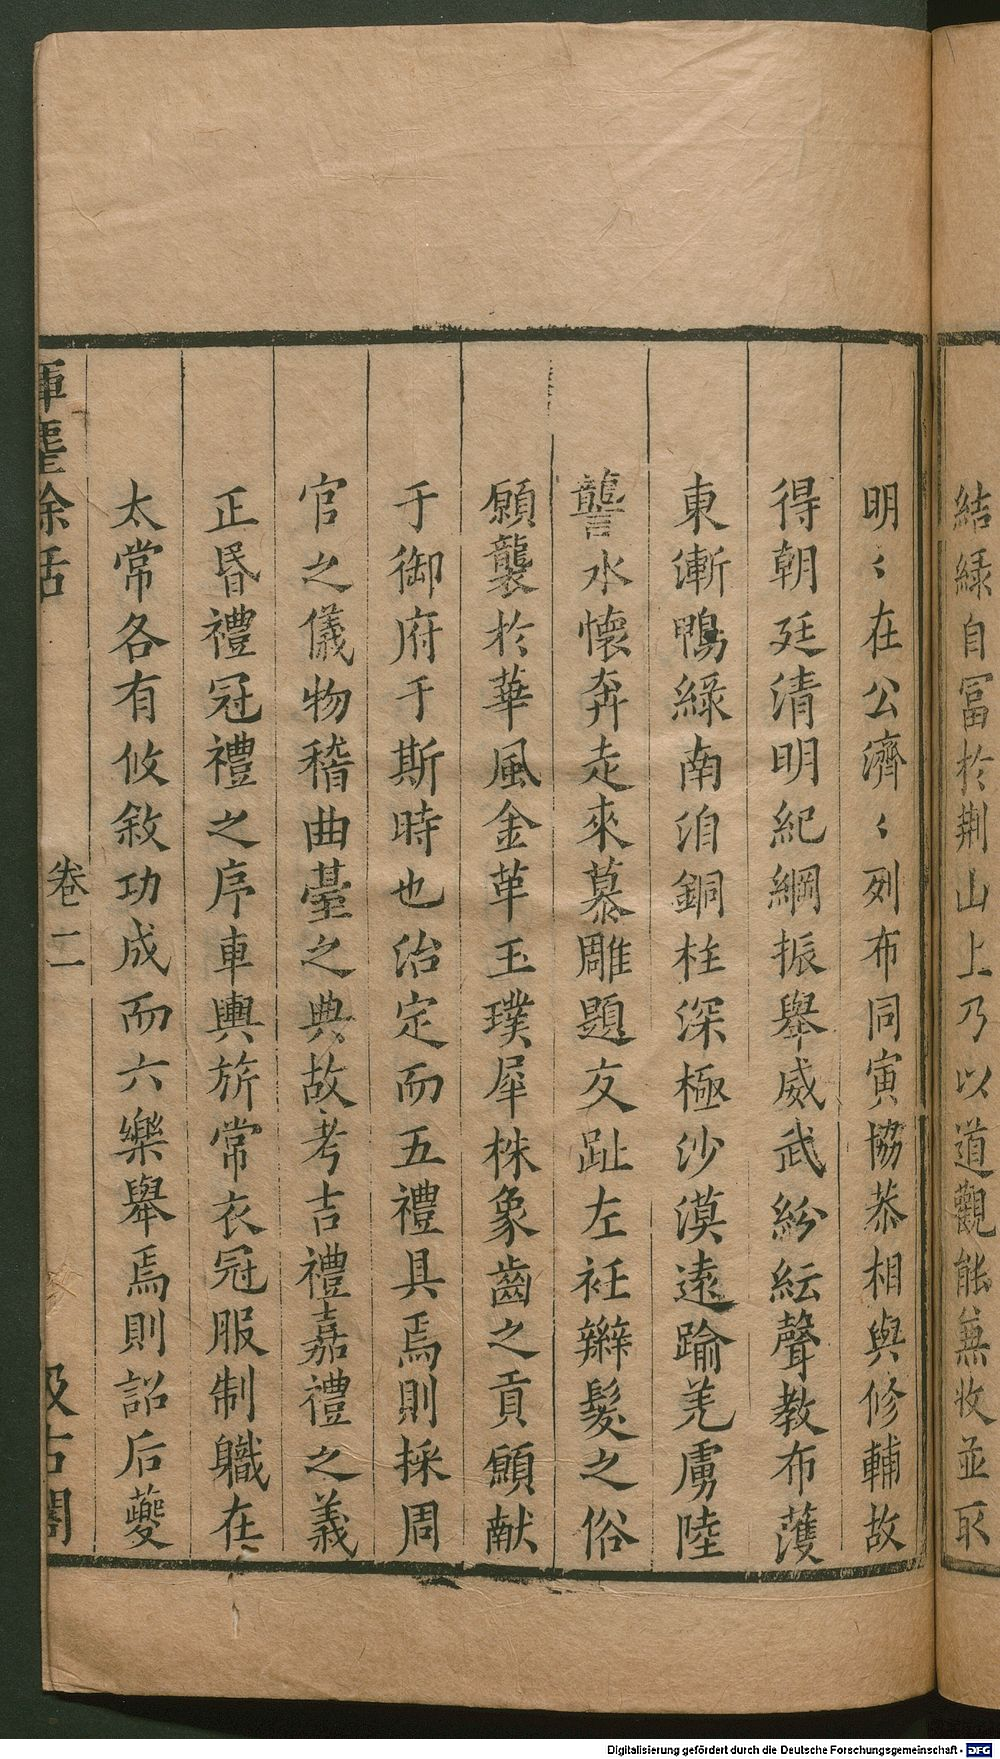 結綠自冨於荆山上乃以道觀能無收並取
明〻在公濟〻列布同寅協恭相與修輔故
得朝廷清明紀綱振舉威武紛紜聲教布濩
東漸鴨綠南洎銅柱深極沙漠遠踰羌虜陸
讋水懷奔走來慕雕題交趾左衽辮髮之俗
願襲於華風金革玉璞犀株象齒之貢願献
于御府于斯時也治定而五禮具焉則採周
官之儀物稽曲臺之典故考吉禮嘉禮之義
正昏禮冠禮之序車輿旂常衣冠服制職在
太常各有攸敘功成而六樂舉焉則詔后夔
揮麈余話 卷二 汲古閣
Digitalisierung gefördert durch die Deutsche Forschungsgemeinschaft - DFG